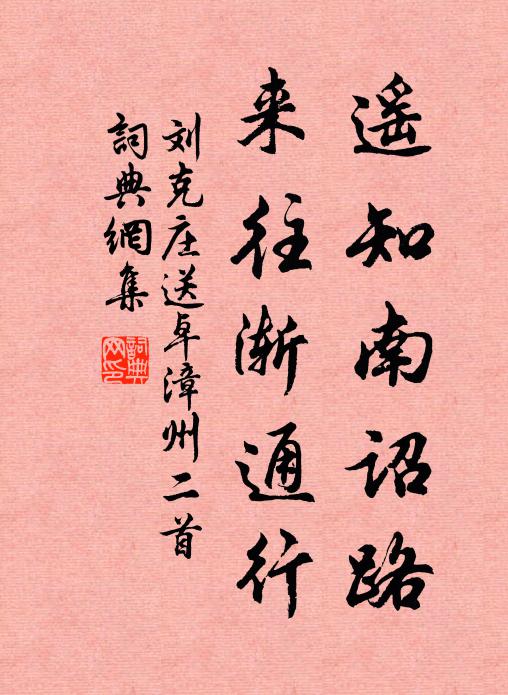 遥知南诏路
来往渐通行
刘克庄送卓漳州二首
詞典網集
詞典网印